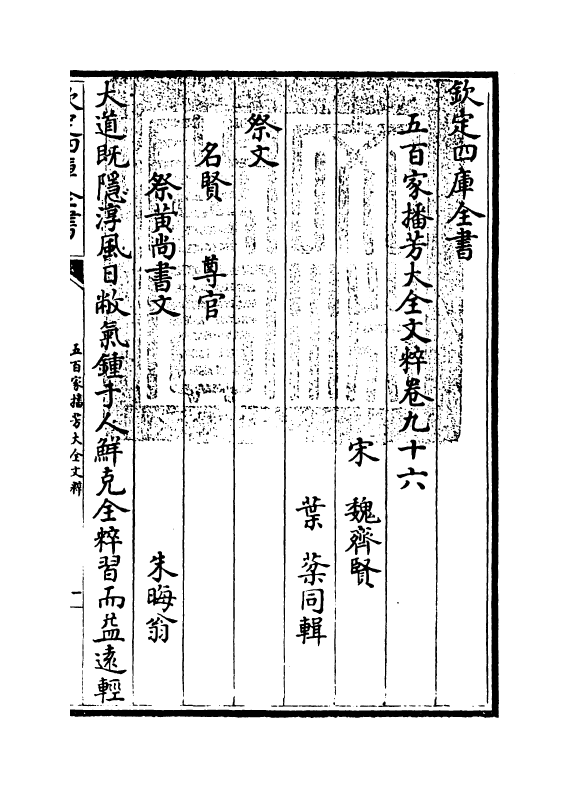 欽定四庫全書
五百家播芳大全文粹卷九十六
宋 魏齊賢
葉 棻同輯
祭文
名賢 尊官
祭黄尚書文 朱晦翁
大道既隱淳風日敝氣鍾于人鮮克全粹習而益逺輕
欽定四庫全書
五百家播芳大全文粹